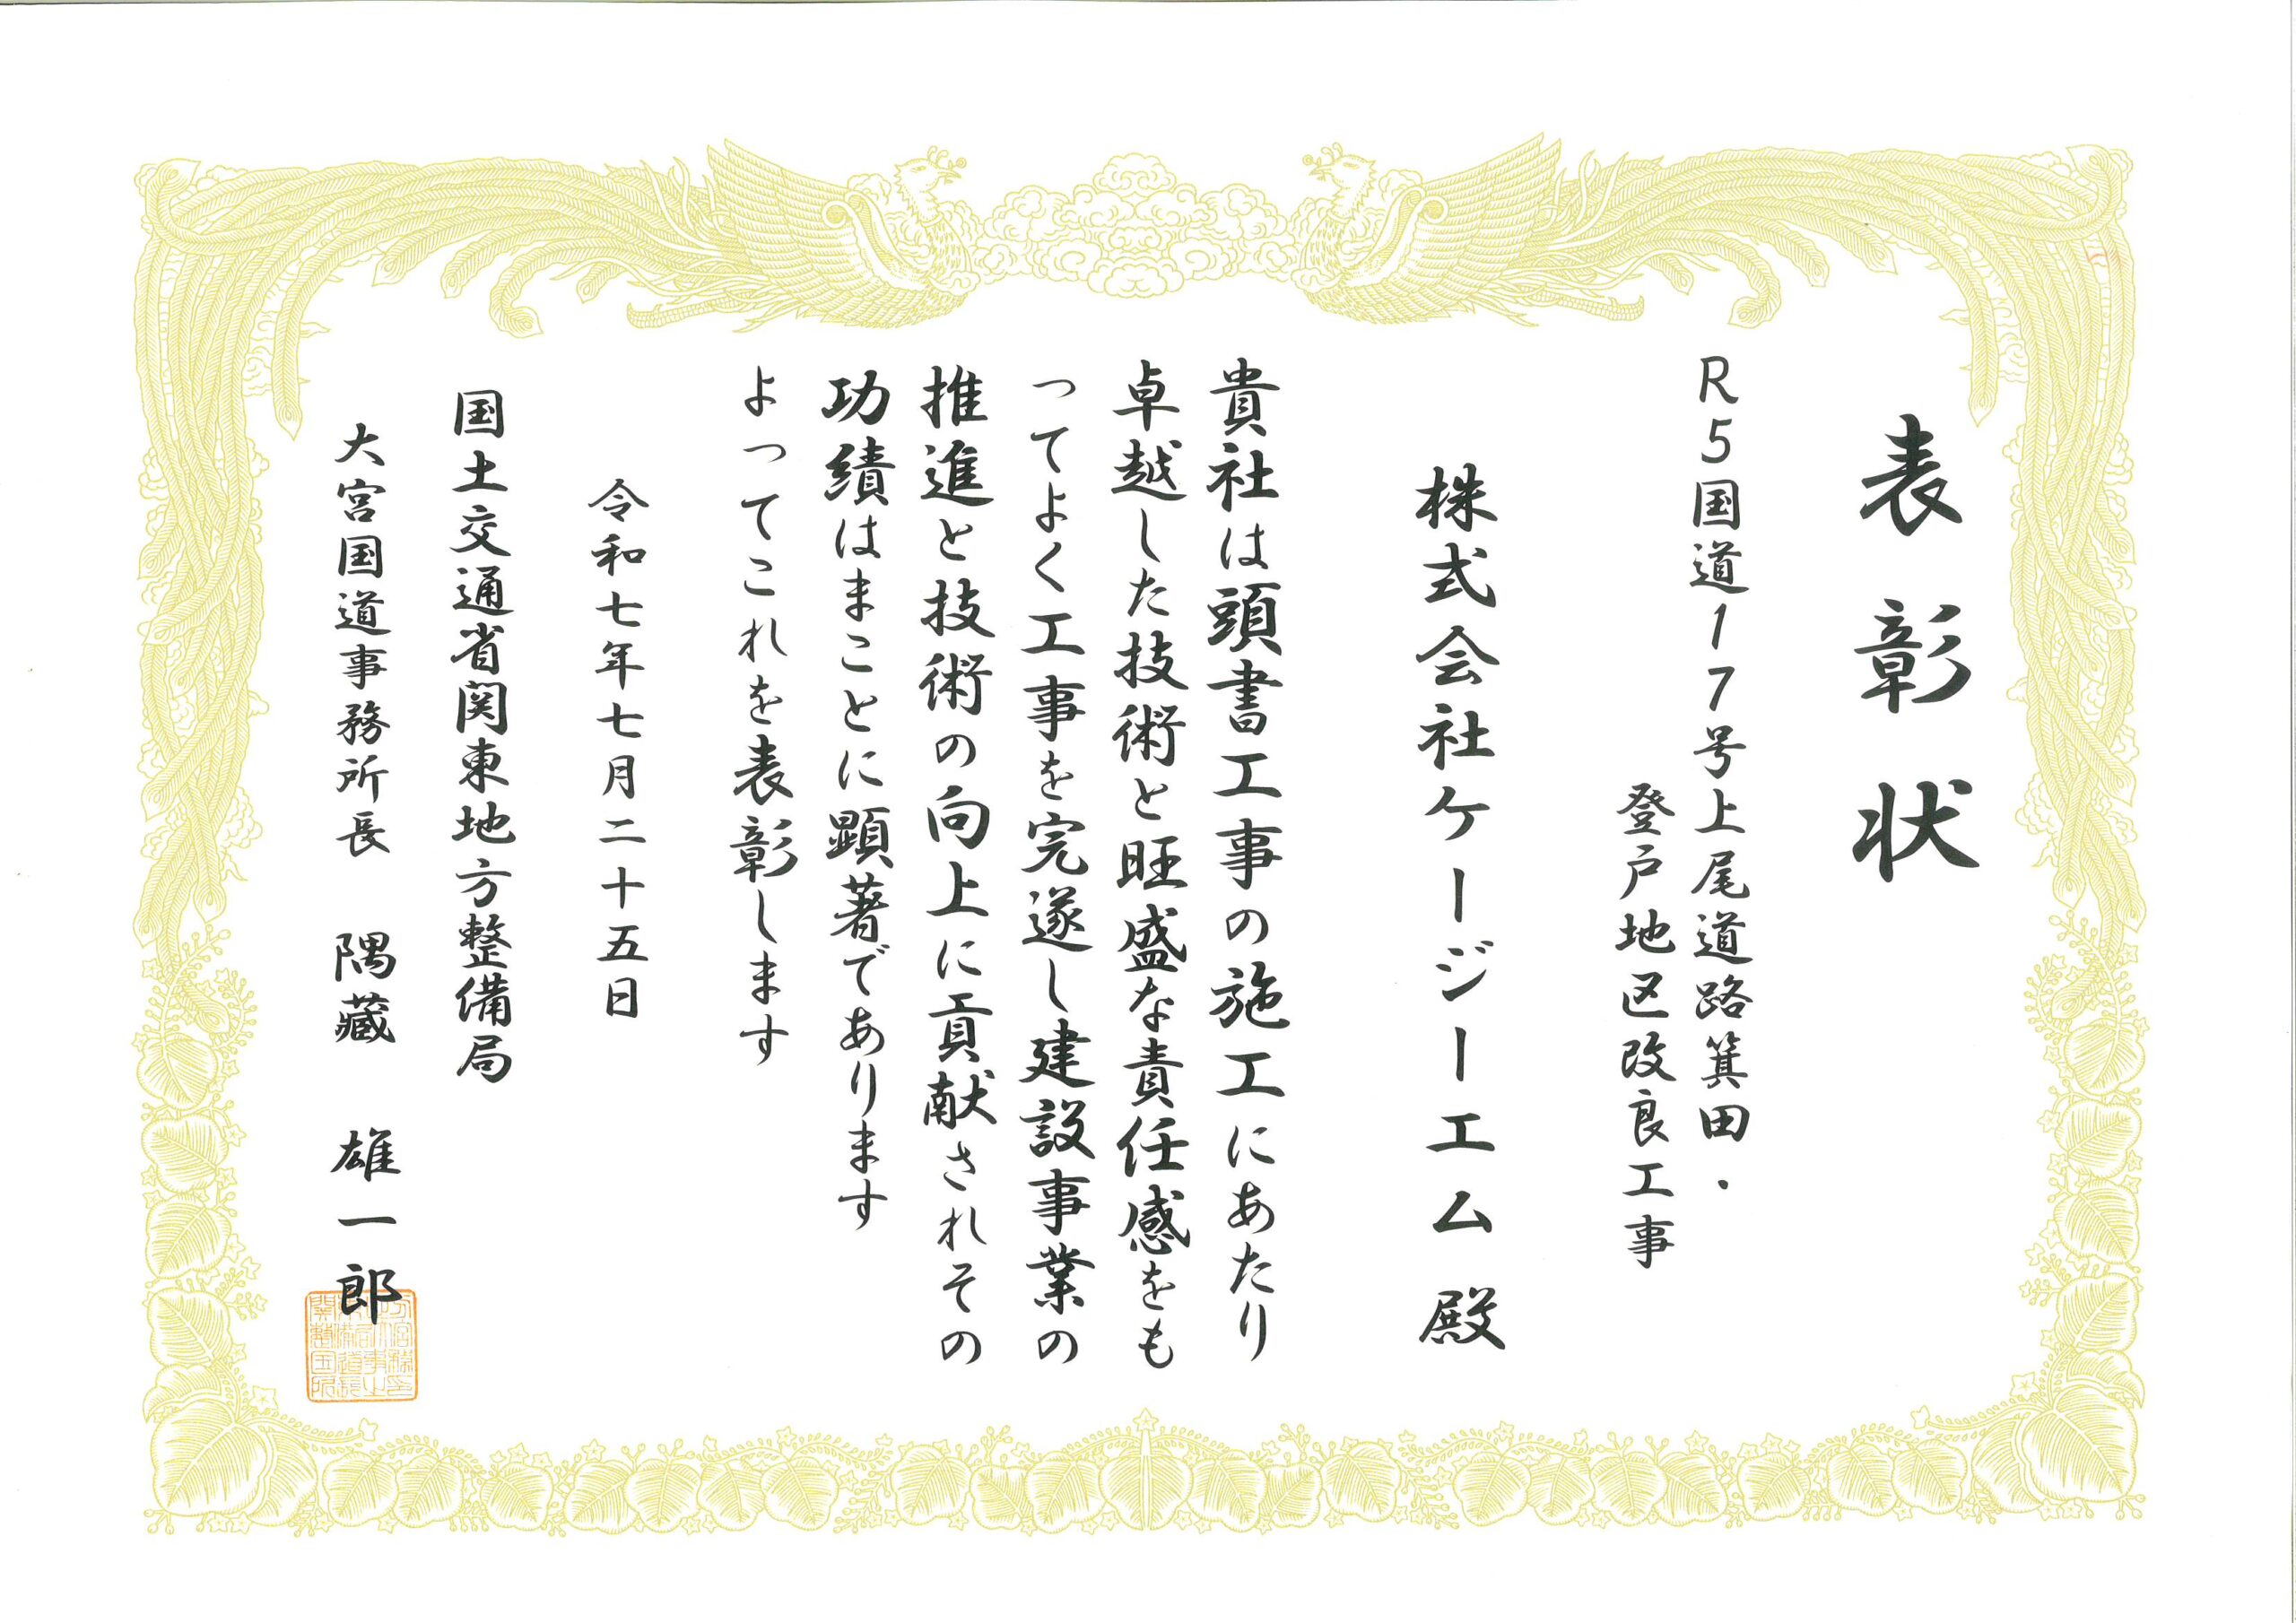 表彰状
R5国道17号上尾道路箕田・
登戸地区改良工事
株式会社ケージーエム殿
貴社は頭書工事の施工にあたり
卓越した技術と旺盛な責任感をも
ってよく工事を完遂し建設事業の
推進と技術の向上に貢献されその
功績はまことに顕著であります
よってこれを表彰します
令和七年七月二十五日
国土交通省関東地方整備局
大宮国道事務所長 隅藏 雄一郎